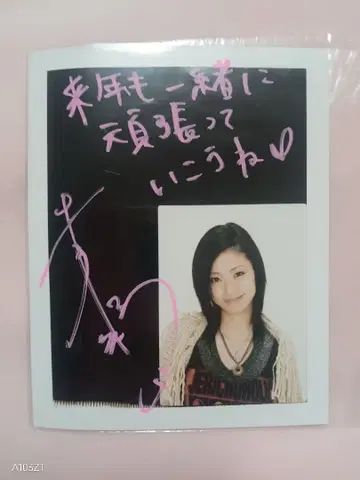 来年も一緒に
頑張って
いこうね♡
A103Z1